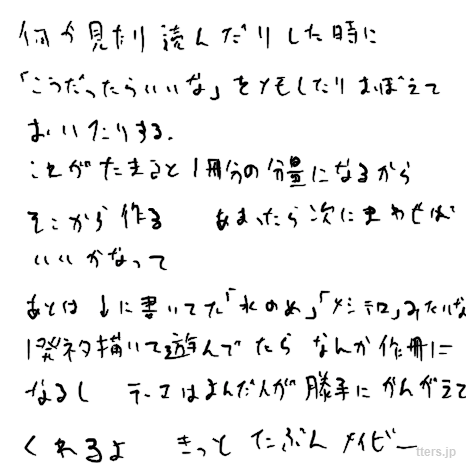 何か見たり読んだりした時に
「こうだったらいいな」をメモしたりおぼえて
おいたりする。
これがたまると1冊分の分量になるから
そこから作る　あまったら次にまわせば
いいかなって
あとは↓に書いてた「水のめ」「メシテロ」みたいな
1発ネタ描いて遊んでたら なんか作冊に
なるし テーマはよんだ人が勝手にかんがえて
くれるよ きっと たぶん メイビー
tters.jp